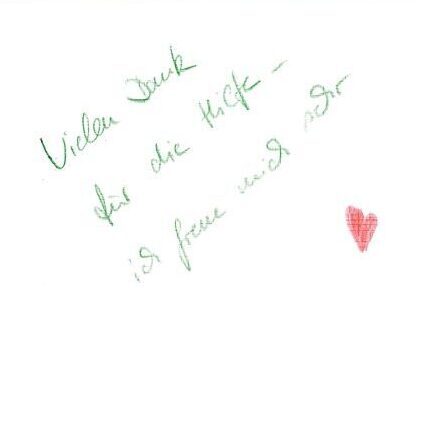 Vielen Dank
für die Hilfe –
ich freue mich sehr